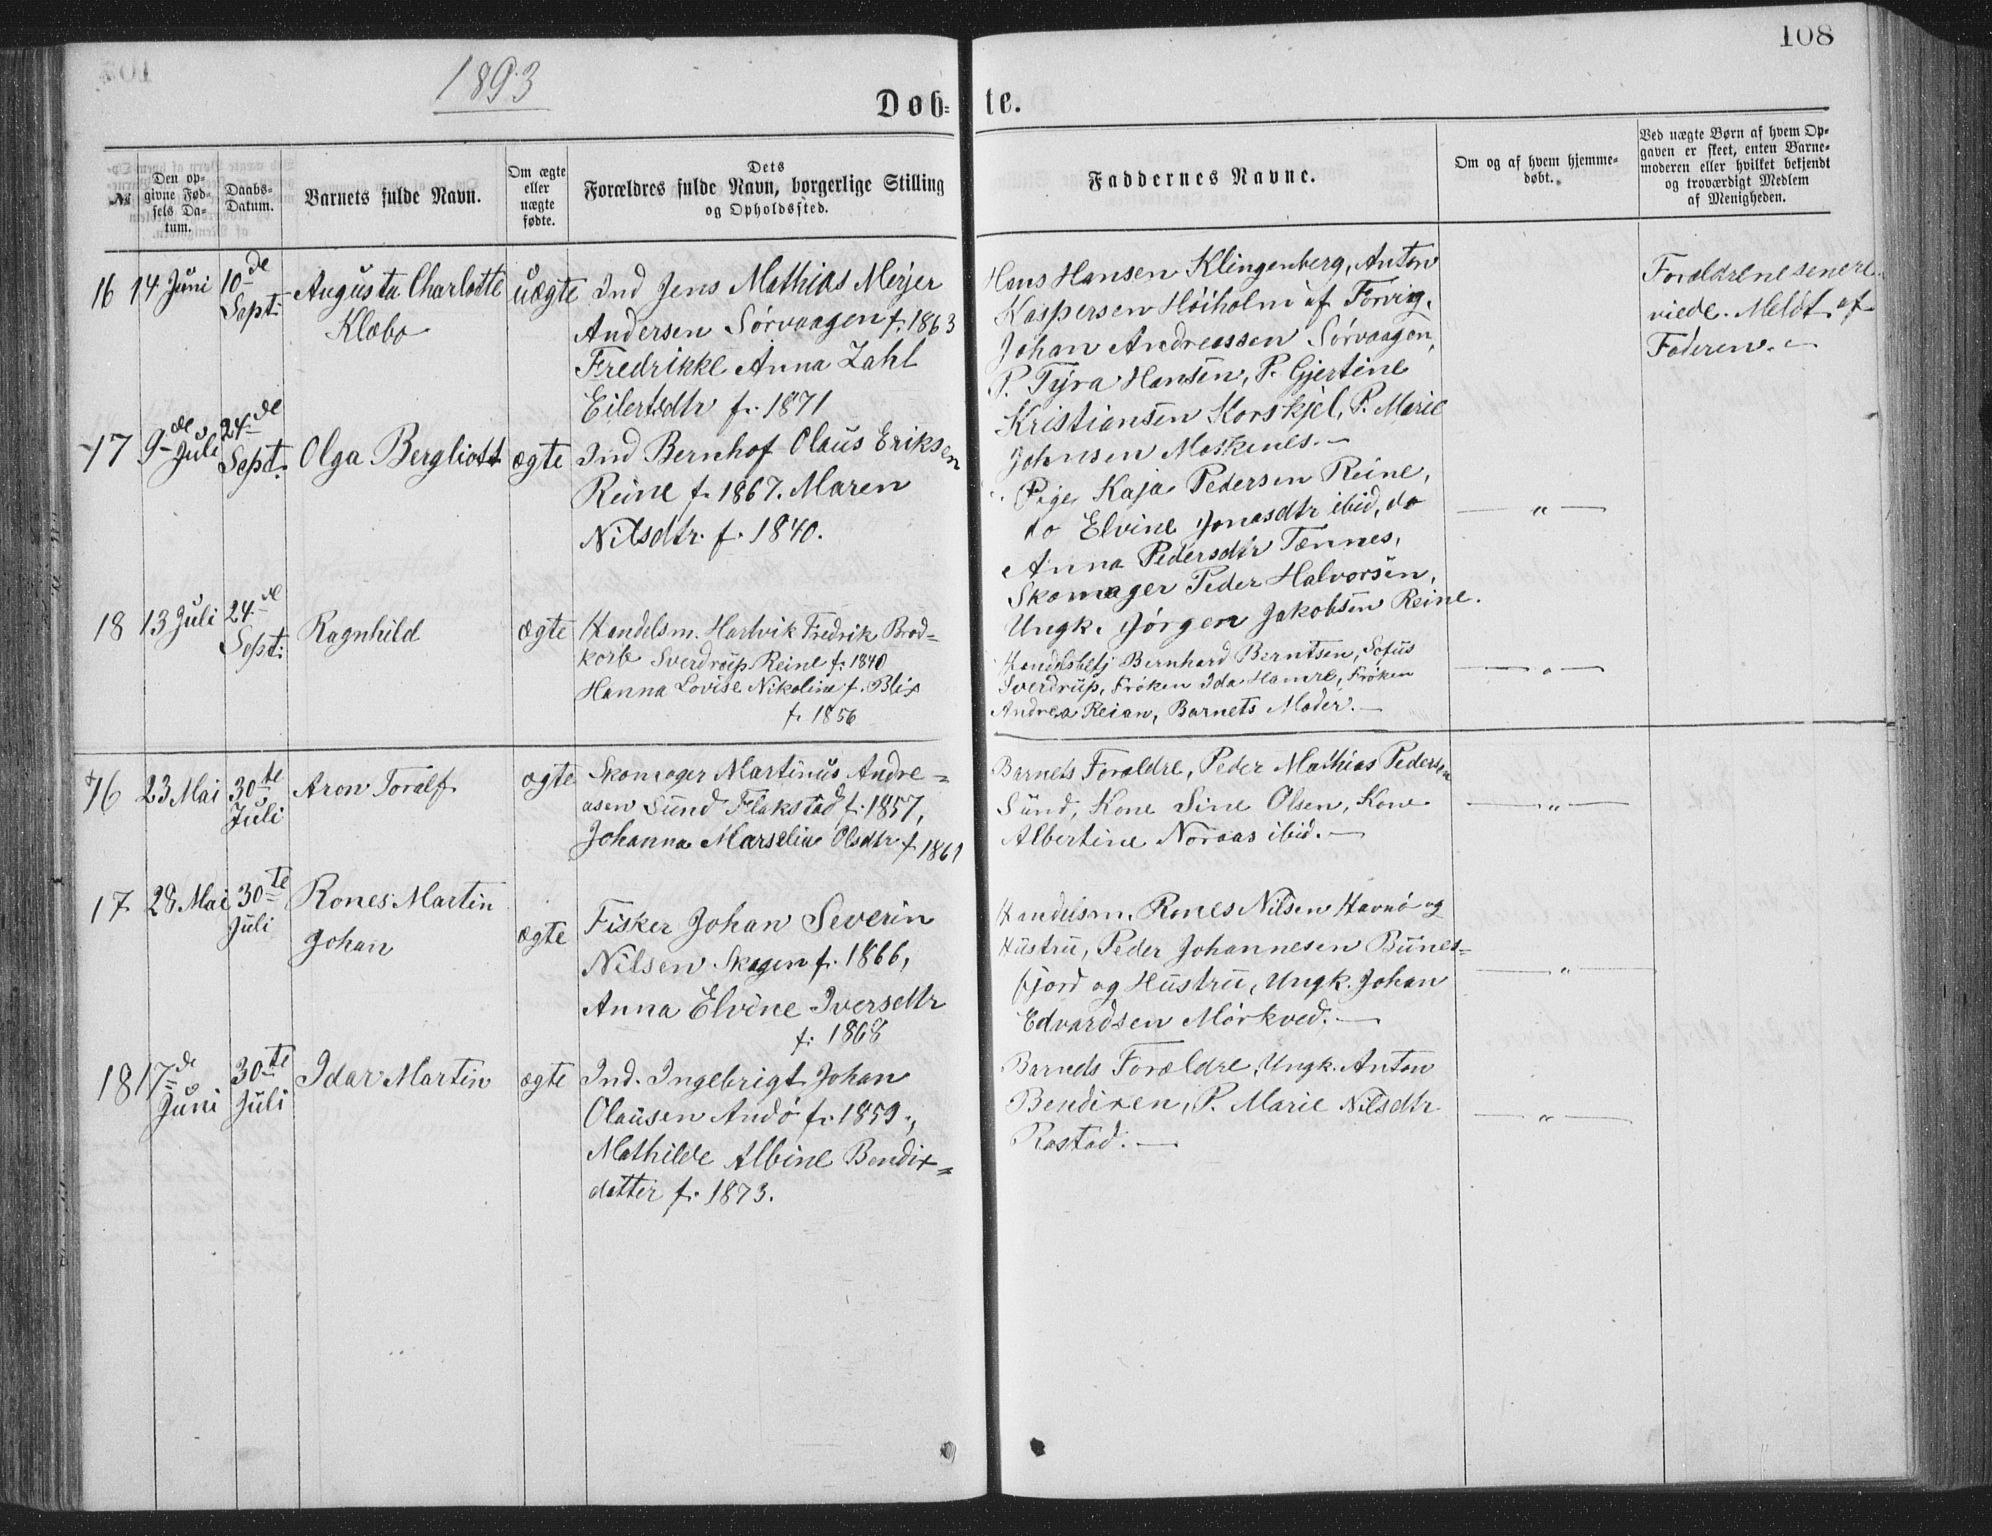 108
1893
Døb- te.
№
Den opgivne Fødsels Datum.
Daabs-Datum.
Barnets fulde Navn.
Om ægte eller uægte fødte.
Dets Forældres fulde Navn, borgerlige Stilling og Opholdssted.
Faddernes Navne.
Om og af hvem hjemmedøbt.
Ved uægte Børn af hvem Opgaven er skeet, enten Barnemoderen eller hvilket bekjendt og troværdigt Medlem af Menigheden.
16 14 Juni 10de Sept. Augusta Charlotte Klæbo uægte
Ind Jens Mathias Mejer
Andersen Sørvaagen f. 1863
Fredrikke Anna Zahl
Eilertsdtr f. 1871
Hans Hansen Klingenberg, Anton
Kaspersen Høiholm af Forvig,
Johan Andreassen Sørvaagen,
P. Tyra Hansen, P. Gjertine
Kristiansen Korskjel, P. Marie
Johnsen Moskenes.—
Forældrene senere
viede. Meldt af
Faderen.—
17 9de Juli 24de Sept. Olga Bergliott ægte
Ind Bernhof Olaus Eriksen
Reine f. 1867. Maren
Nilsdtr. f. 1840.
Pige Kaja Pedersen Reine,
do Elvine Jonasdtr ibid, do
Anna Pedersdtr Tennes,
Skomager Peder Halvorsen,
Ungk. Jørgen Jakobsen Reine.
— „ —
18 13 Juli 24de Sept. Ragnhild ægte
Handelsm. Hartvik Fredrik Brod=
korb Sverdrup Reine f. 1840
Hanna Lovise Nikoline f. Blix
f. 1856
Handelsbetj Bernhard Berntsen, Sofus
Sverdrup, Frøken Ida Hamre, Frøken
Andrea Reian, Barnets Moder.—
— „ —
16 23 Mai 30te Juli Aron Toralf ægte
Skomager Martinus Andre=
asen Sund Flakstad f. 1857,
Johanna Marselie Olsdtr f 1861
Barnets Forældre, Peder Mathias Pedersen
Sund, Kone Sine Olsen, Kone
Albertine Noraas ibid.—
— „ —
17 28 Mai 30te Juli Rones Martin Johan ægte
Fisker Johan Severin
Nilsen Skagen f. 1866,
Anna Elvine Iversdtr
f. 1868
Handelsm. Rones Nilsen Havnø og
Hustru, Peder Johannesen Bunes=
fjord og Hustru, Ungk. Johan
Edvardsen Mørkved.—
— „ —
18 17de Juni 30te Juli Idar Martin ægte
Ind. Ingebrigt Johan
Olausen Andø f. 1859.,
Mathilde Albine Bendix=
datter f. 1873.
Barneds Forældre, Ungk. Anton
Bendixen, P. Marie Nilsdtr
Rostad.—
— „ —